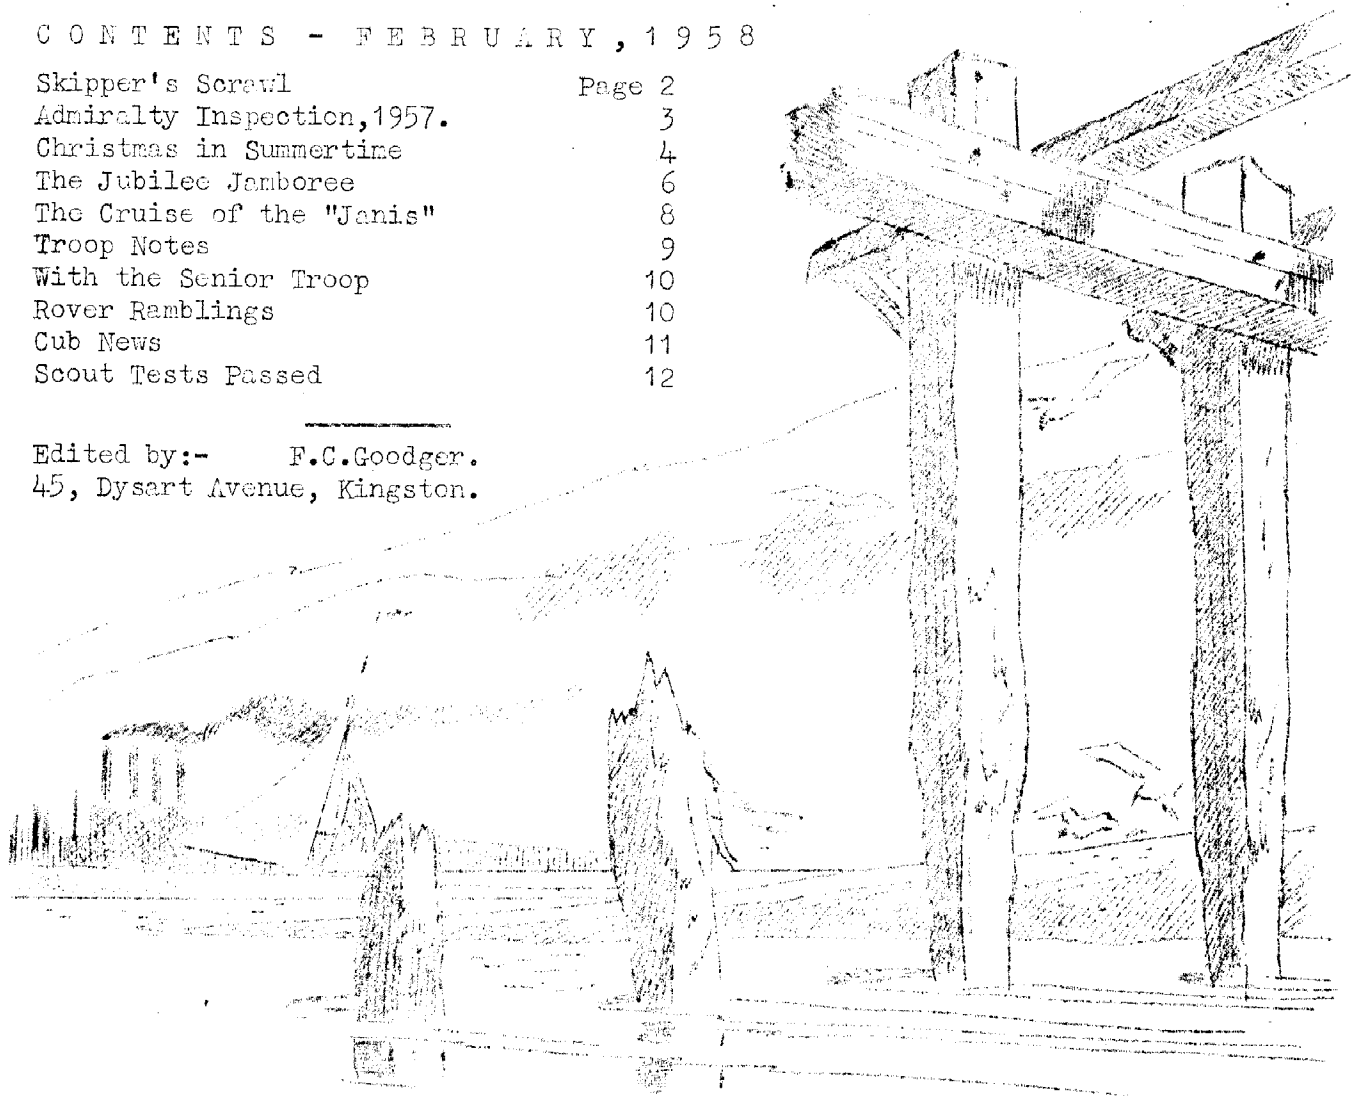 CONTENTS - FEBRUARY,1958
Skipper's Scrawl Page 2
Admiralty Inspection,1957. 3
Christmas in Summertime 4
The Jubilee Jamboree 6
The Cruise of the "Janis" 8
Troop Notes 9
With the Senior Troop 10
Rover Ramblings 10
Cub News 11
Scout Tests Passed 12
Edited by:- F.C.Goodger.
45, Dysart Avenue, Kingston.